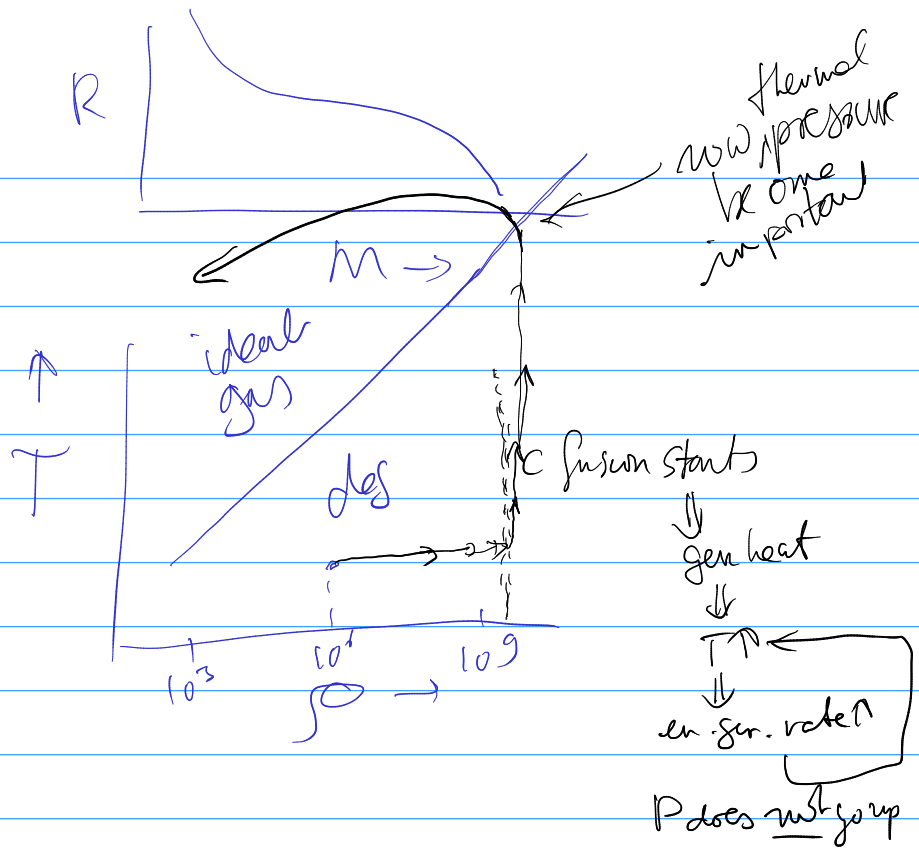 R
thermal
now pressure
become
important
M →
ideal
gas
↑
T
deg
C fusion starts
⇓
gen heat
⇓
T⇑
⇓
en. gen. rate↑
P does not go up
10³
10⁹
ρ →